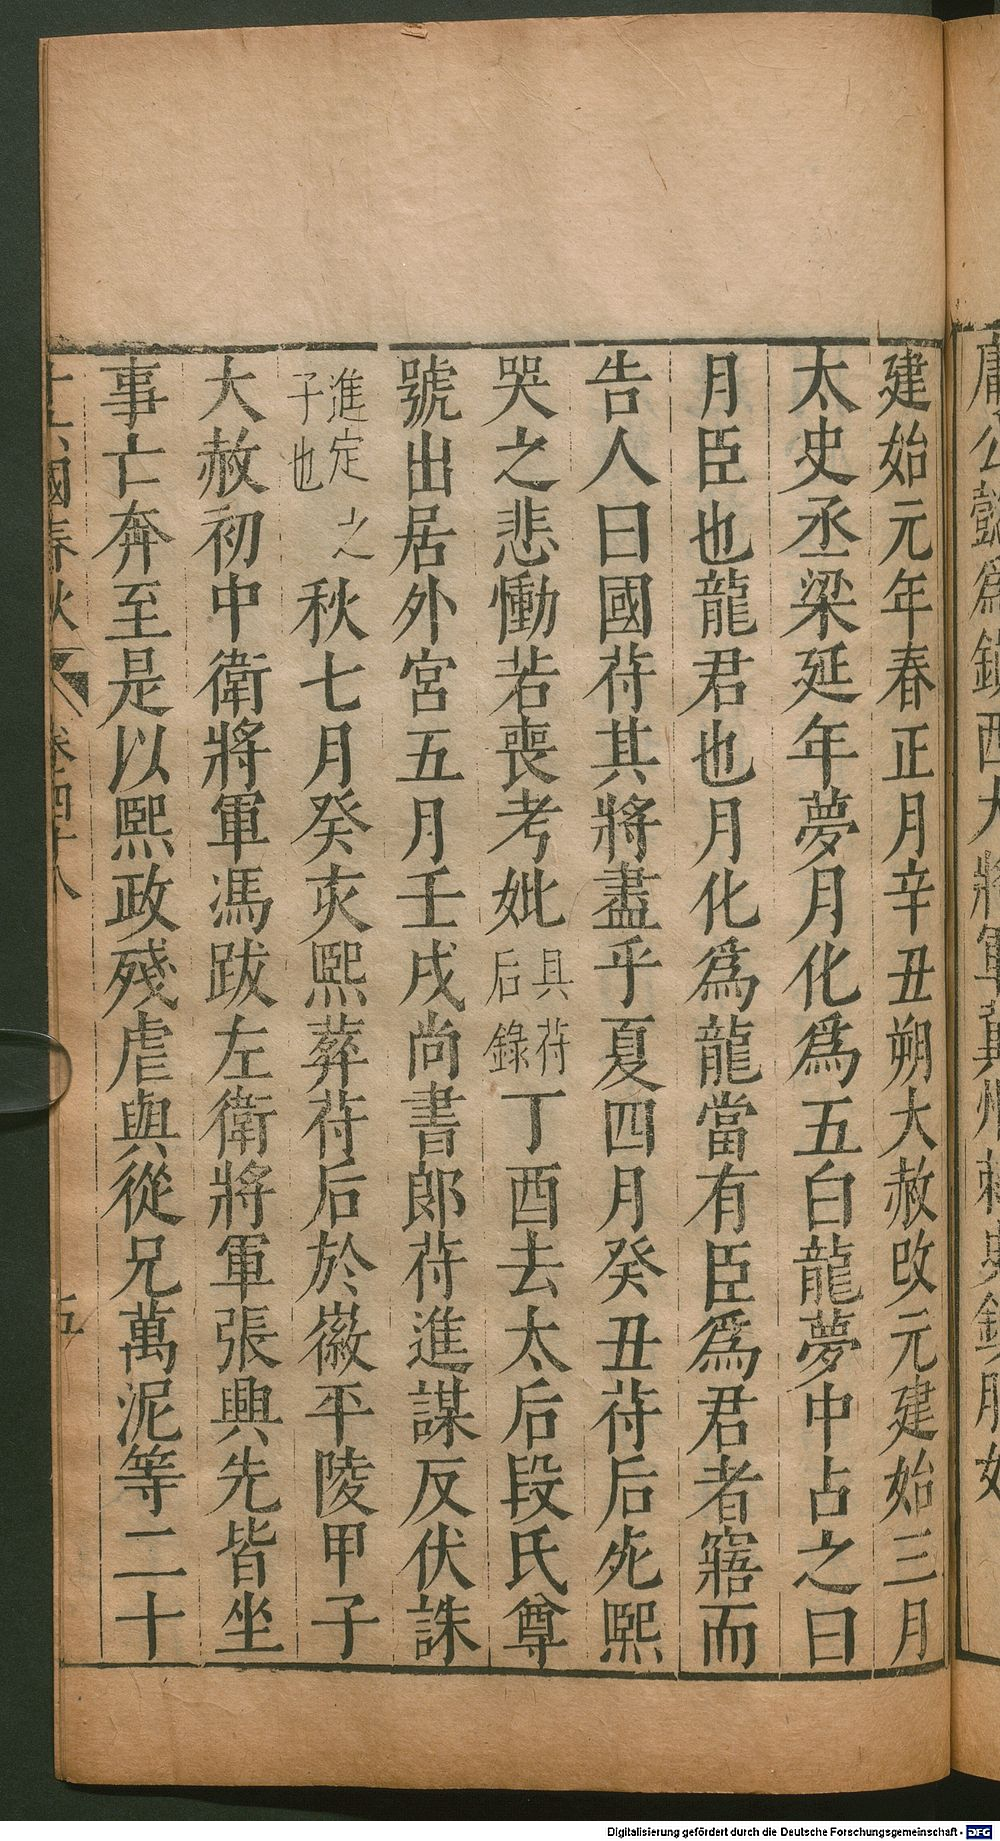 建始元年春正月辛丑朔大赦改元建始三月
太史丞梁延年夢月化爲五白龍夢中占之曰
月臣也龍君也月化爲龍當有臣爲君者寤而
告人曰國苻其將盡乎夏四月癸丑苻后死熙
哭之悲慟若喪考妣具苻后錄丁酉去太后段氏尊
號出居外宮五月壬戌尚書郎苻進謀反伏誅
進定之子也秋七月癸亥熙葬苻后於徽平陵甲子
大赦初中衛將軍馮跋左衛將軍張興先皆坐
事亡奔至是以熙政殘虐與從兄萬泥等二十
十六國春秋 卷四十八 五
Digitalisierung gefördert durch die Deutsche Forschungsgemeinschaft - DFG